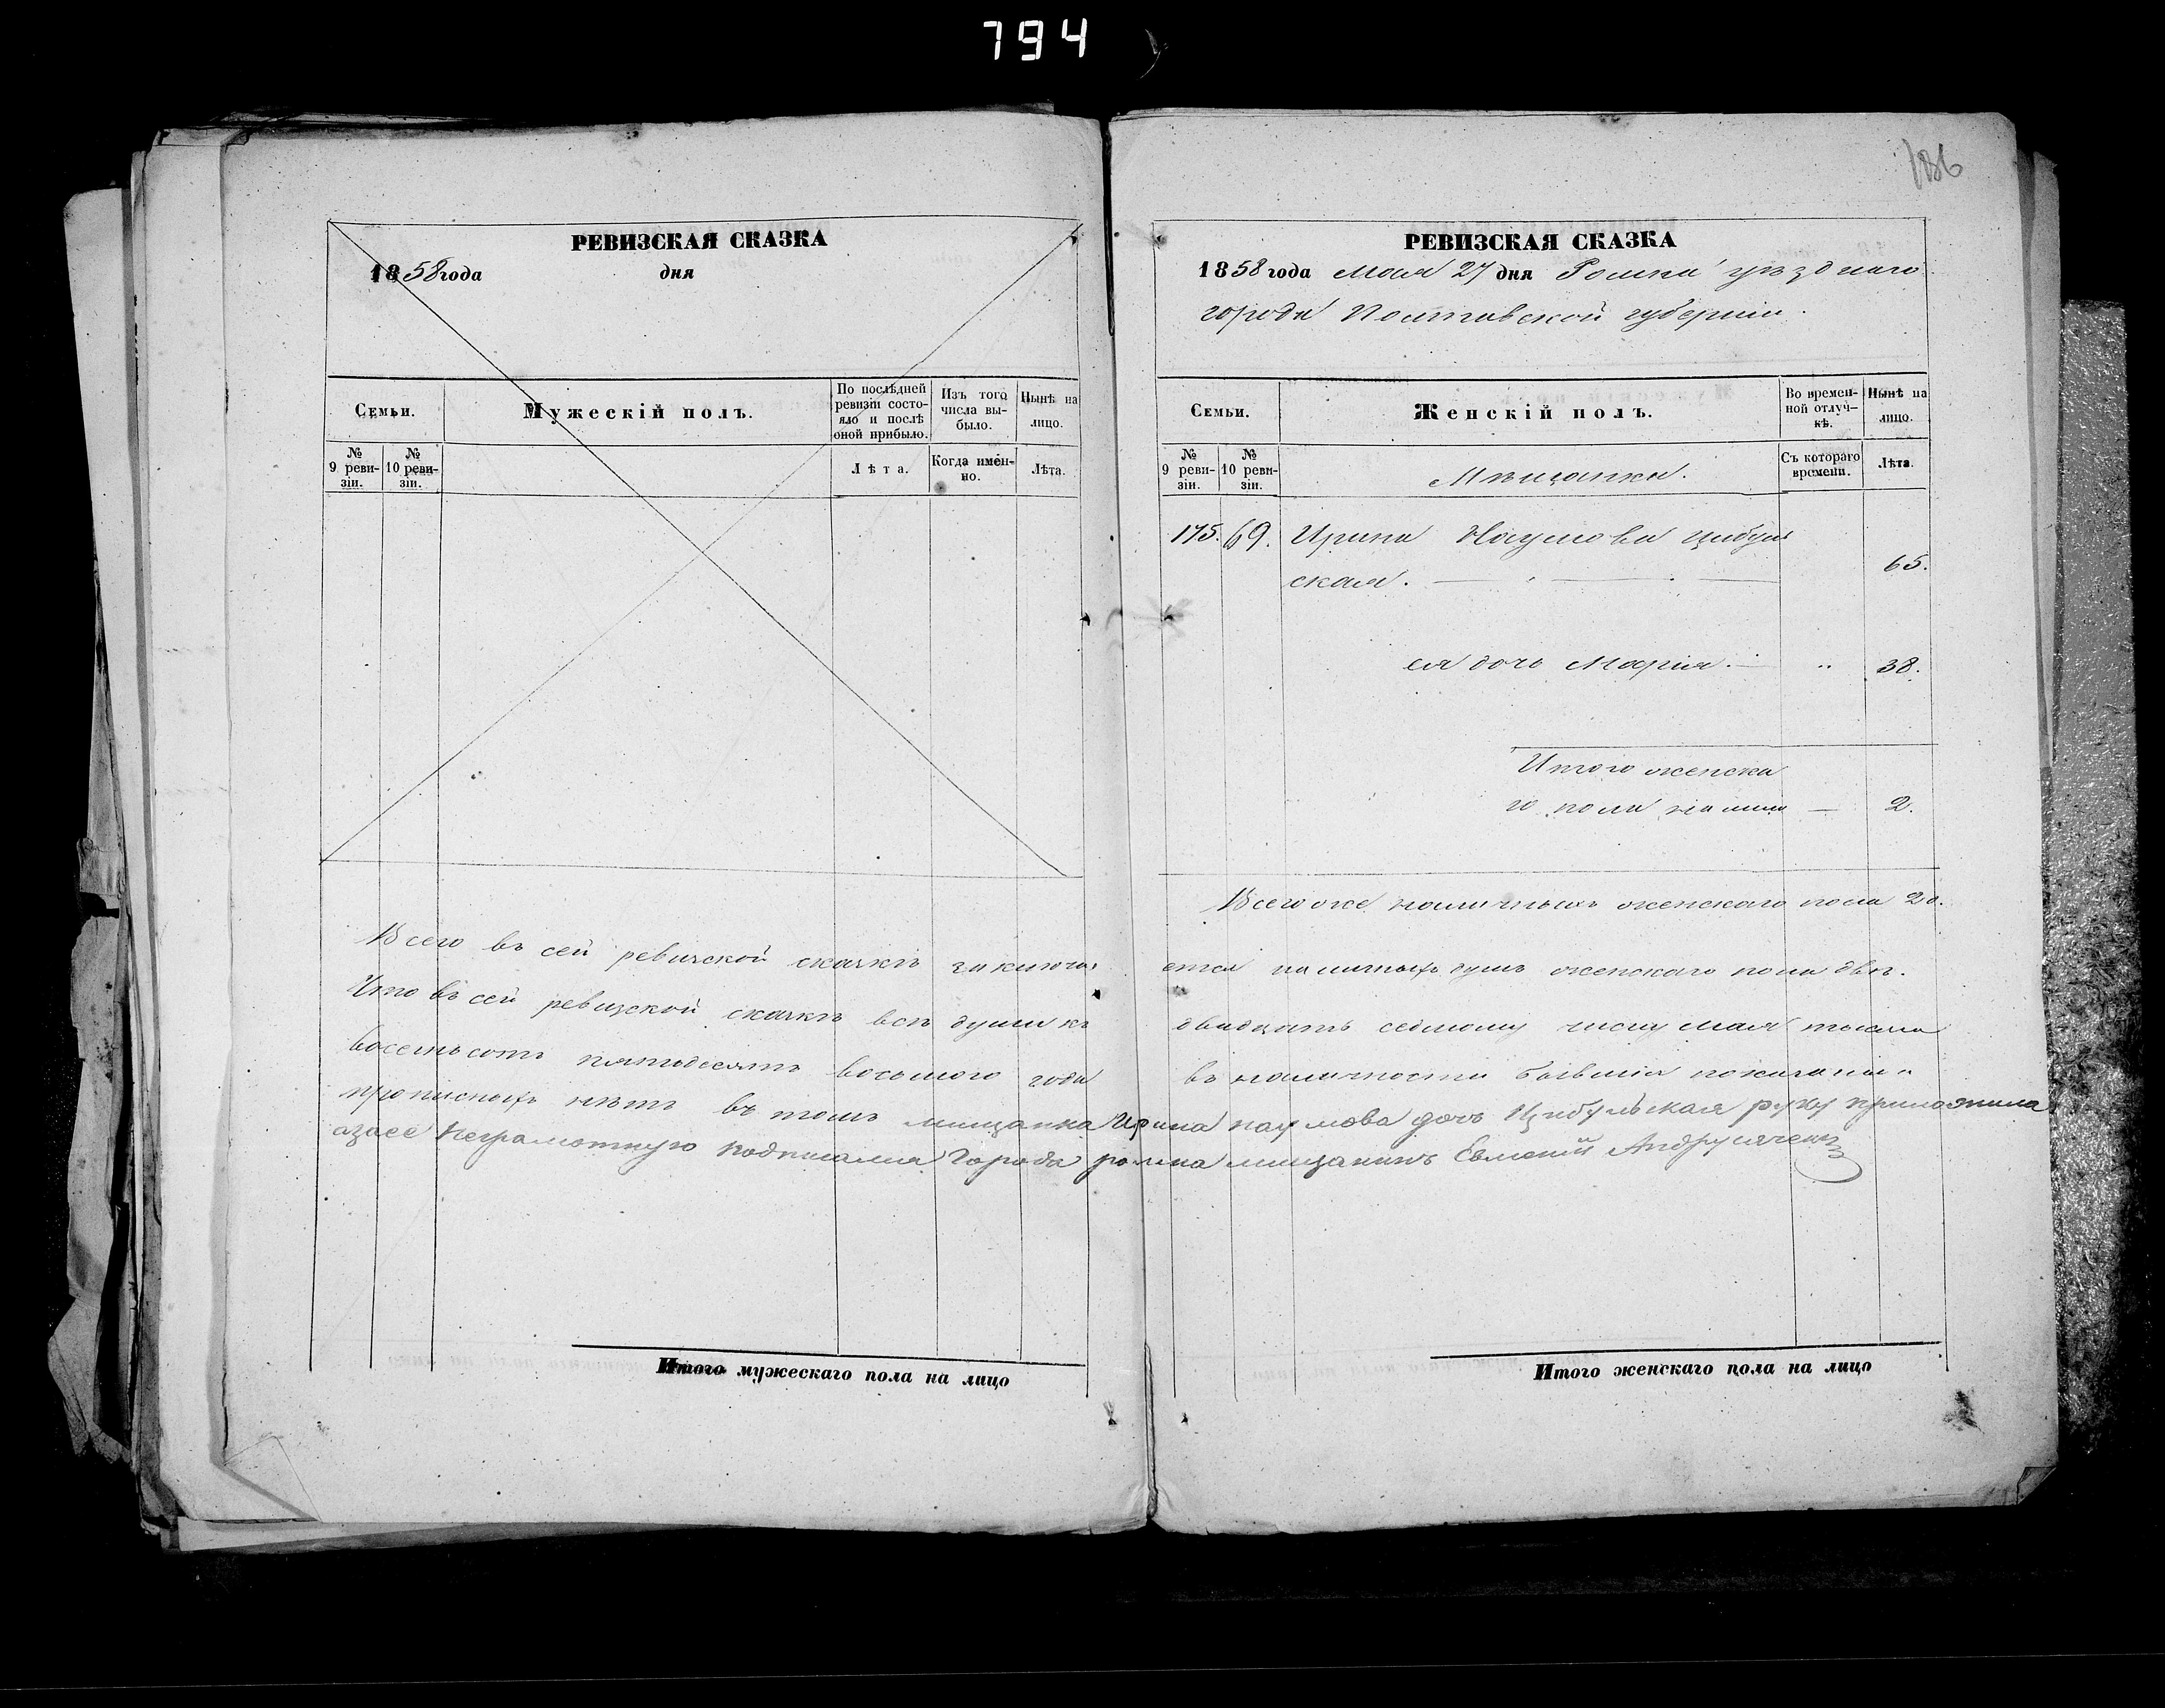 794
186
РЕВИЗСКАЯ СКАЗКА
1858 года дня
Семьи.
Мужескій полъ.
По послѣдней ревизіи состояло и послѣ оной прибыло.
Изъ того числа выбыло.
Нынѣ на лицо.
№ 9 ревизіи.
№ 10 ревизіи.
Лѣта.
Когда именно.
Лѣта.
РЕВИЗСКАЯ СКАЗКА
1858 года Мая 27 дня Ромна уѣзднаго
города Полтавской губерніи.
Семьи.
Женскій полъ.
Во временной отлучкѣ.
Нынѣ на лицо.
№ 9 ревизіи.
№ 10 ревизіи.
Мѣщанки.
Съ котораго времени.
Лѣта.
175. 69. Ирина Наумова Цибуль
ская. 65.
ея дочь Марія. „ 38.
Итого женска
го пола на лицо 2.
Всего же наличныхъ женскаго пола
Всего въ сей ревизской сказкѣ заключа ется наличныхъ душъ женскаго пола двѣ.
Что въ сей ревизской сказкѣ всѣ души къ двадцать седьмому числу Мая тысяча
восемьсотъ пятьдесятъ восьмого года въ наличности бывшія показаны и
прописныхъ нѣтъ въ томъ мищанка Ирина наумова дочь Цибульская руку приложила
азаее неграмотную подписался Города ромна мищанинъ Евменій Андрущенко
Итого мужескаго пола на лицо
Итого женскаго пола на лицо